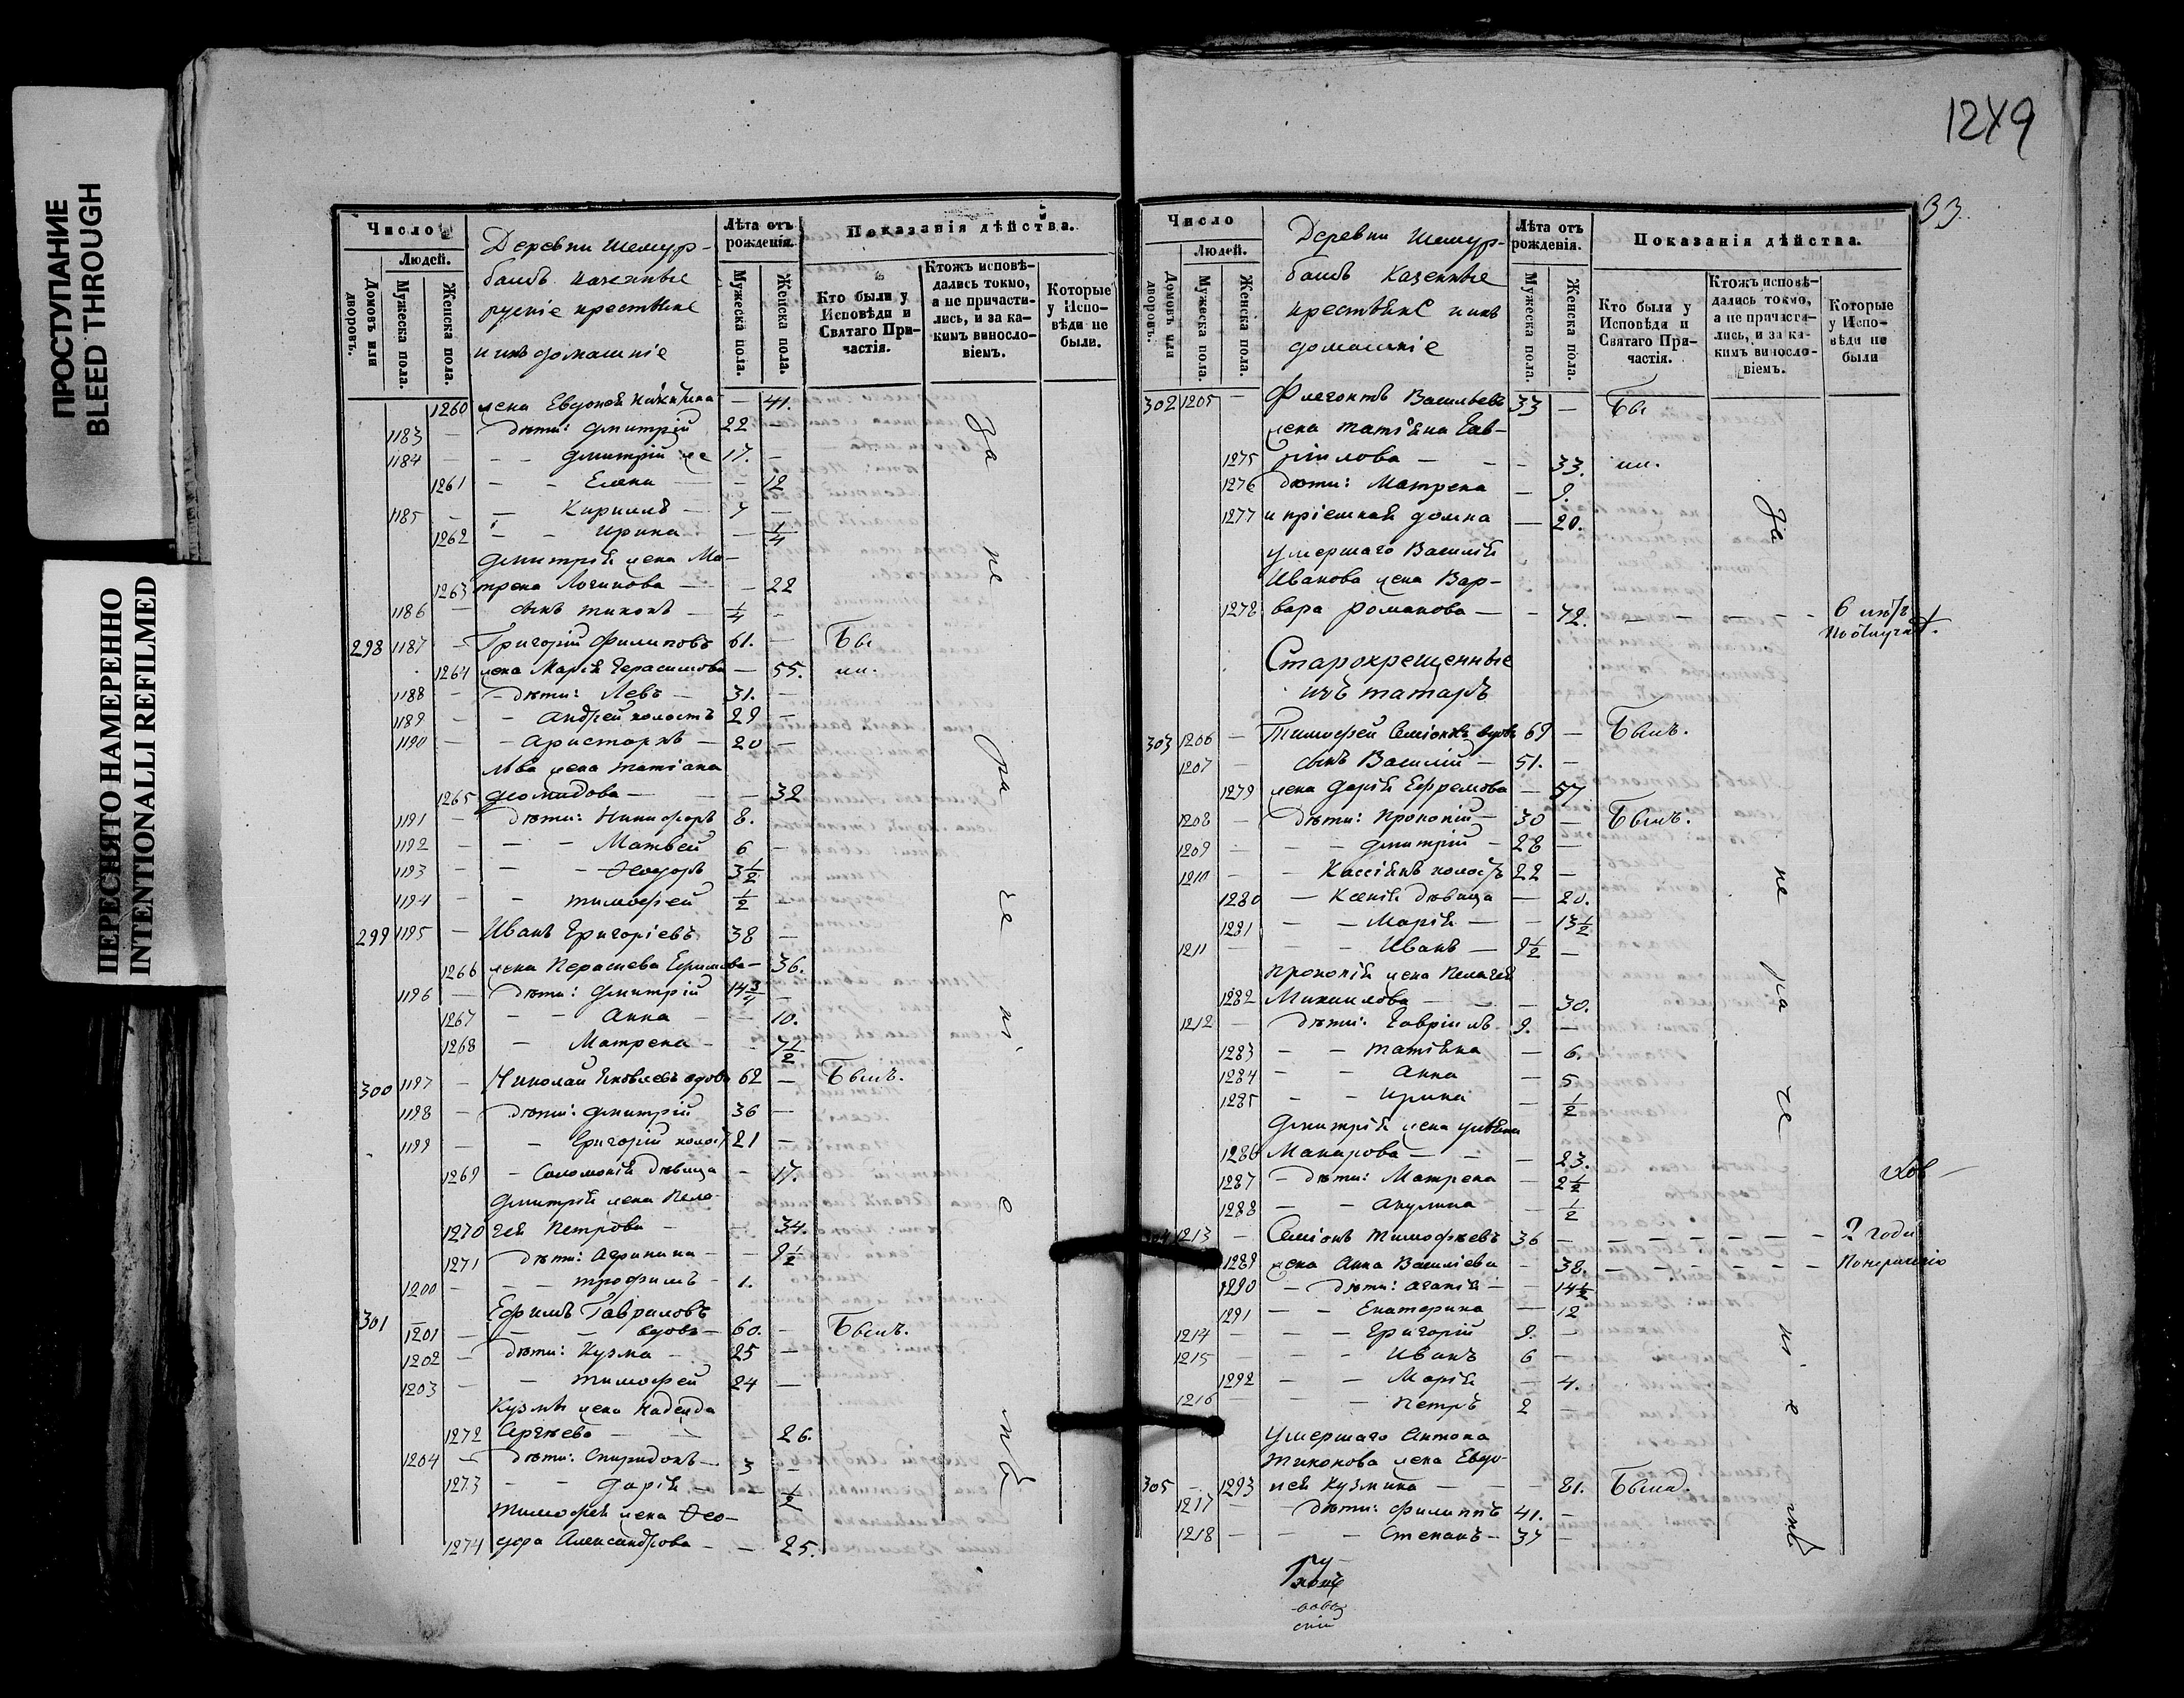 ПРОСТУПАНИЕ
BLEED THROUGH
ПЕРЕСНЯТО НАМЕРЕННО
INTENTIONALLI REFILMED
Число
Людей.
Домовъ или дворовъ.
Мужеска пола.
Женска пола.
Деревни Шемур-
башъ казенные
рускіе крестьяне
и ихъ домашніе
Лѣта отъ рожденія.
Мужеска пола.
Женска пола.
Показанія дѣйства.
Кто были у Исповѣди и Святаго Причастія.
Ктожъ исповѣдались токмо, а не причастились, и за какимъ винословіемъ.
Которые у Исповѣди не были.
1260 жена Евдокія Никитина — 41.
1183 — дѣти: Дмитрій 22 —
1184 — — Дмитрій же 17. —
1261 — — Елена — 12
1185 — — Кириллъ — 7 —
1262 — — Ирина — 1/4
Дмитрія жена Ма-
1263 трена Логинова — — 22
1186 — сынъ Тихонъ — 1/4 —
298 1187 — Григорій Филиповъ 61. — Бы
1264 жена Марія Герасимова — 55. ли.
1188 — дѣти: Левъ — 31. —
1189 — — Андрей холостъ 29 —
1190 — — Аристархъ — 20 —
Льва жена Татіана
1265 Деомидова — — 32
1191 — дѣти: Никифоръ 8.
1192 — — Матвей 6 —
1193 — — Ѳеодоръ 3 1/2
1194 — — Тимофей 1/2 —
299 1195 — Иванъ Григоріевъ 38 —
1266 жена Парасковья — 36.
1196 — дѣти: Дмитрій 14 3/4 —
1267 — — Анна — — 10.
1268 — Матрена — — 7 1/2
300 1197 — Николай Яковлевъ вдовъ 62 — Былъ.
1198 — дѣти: Дмитрій 36 —
1199 — — Григорій холост 21 —
1269 — Соломонія дѣвица — 17.
Дмитрія жена Пела-
1270 гея Петрова — — 34.
1271 дѣти: Агрипина — — 9 1/2
1200 — — — Трофимъ — 1.
301 Ефимъ Гавриловъ
1201 — — — вдовъ — 60. — Былъ.
1202 — дѣти: Кузма — 25 —
1203 — — Тимофей 24 —
Кузмы жена Надежда
1272 Сергѣева — — 26.
1204 — дѣти: Спиридонъ — 3 —
1273 — — Дарія — — 1/2
Тимофея жена Ѳео-
1274 дора Александрова — — 25.
За не ра че ні е мъ
12Х9
33.
Число
Людей.
Домовъ или дворовъ.
Мужеска пола.
Женска пола.
Деревни Шемур-
башъ казенные
крестьяне и ихъ
домашніе
Лѣта отъ рожденія.
Мужеска пола.
Женска пола.
Показанія дѣйства.
Кто были у Исповѣди и Святаго Причастія.
Ктожъ исповѣдались токмо, а не причастились, и за какимъ винословіемъ.
Которые у Исповѣди не были
302 1205 — Флегонтъ Васильевъ 33 — Бы
жена Татіяна Гав-
1275 ріилова — — — 33. ли.
1276 дѣти: Матрена — 9.
1277 и пріемная Домна — 20.
умершаго Василія
Иванова жена Вар-
1278 вара Романова — — 72. — — — — 6 лѣтъ
Старокрещенные
изъ татаръ
303 1206 — Тимофей Семіоновъ вдовъ 69 — Былъ.
1207 — сынъ Василій — 51. —
1279 жена Дарія Ефремова — 57
1208 — дѣти: Прокопій — 30 — Былъ.
1209 — — — Дмитрій — 28 —
1210 — — Кассіянъ холостъ 22 —
1280 — Ксенія дѣвица — 20.
1281 — — Марія — — 13 1/2
1211 — — Иванъ — 9 1/2 —
Прокопія жена Пелагея
1282 Михаилова — — — 30.
1212 — дѣти: Гавріилъ 9. —
1283 — — Татіяна — 6.
1284 — — Анна — 5
1285 — — Ирина — 1/2
Дмитрія жена Ульяна
1286 Макарова — — — 23.
1287 — дѣти: Матрена — 2 1/2
1288 — — Акулина — 1/2
1213 — Семіонъ Тимофѣевъ 36 — — — — — — 2 года
1289 жена Анна Василіева — 38. — — — — —
1290 — дѣти: Агапія — — 14 1/2
1291 — — Екатерина — 12
1214 — — — Григорій 9. —
1215 — — — Иванъ 6 —
1292 — — Марія — 4.
1216 — — Петръ 2 —
Умершаго Антона
Тихонова жена Евдо-
305 — 1293 кія Кузмина — — — 81. Была.
1217 — — дѣти: Филиппъ 41. —
1218 — — — Степанъ — 37 —
За не ра че ні е мъ